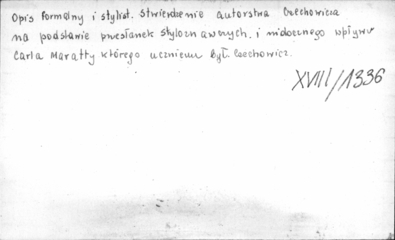 Opis formalny i stylist. Stwierdzenie autorstwa Czechowicza
na podstawie przesłanek styloznawczych i widocznego wpływu
Carla Maratty którego uczniem był Czechowicz.
XVIII/1336